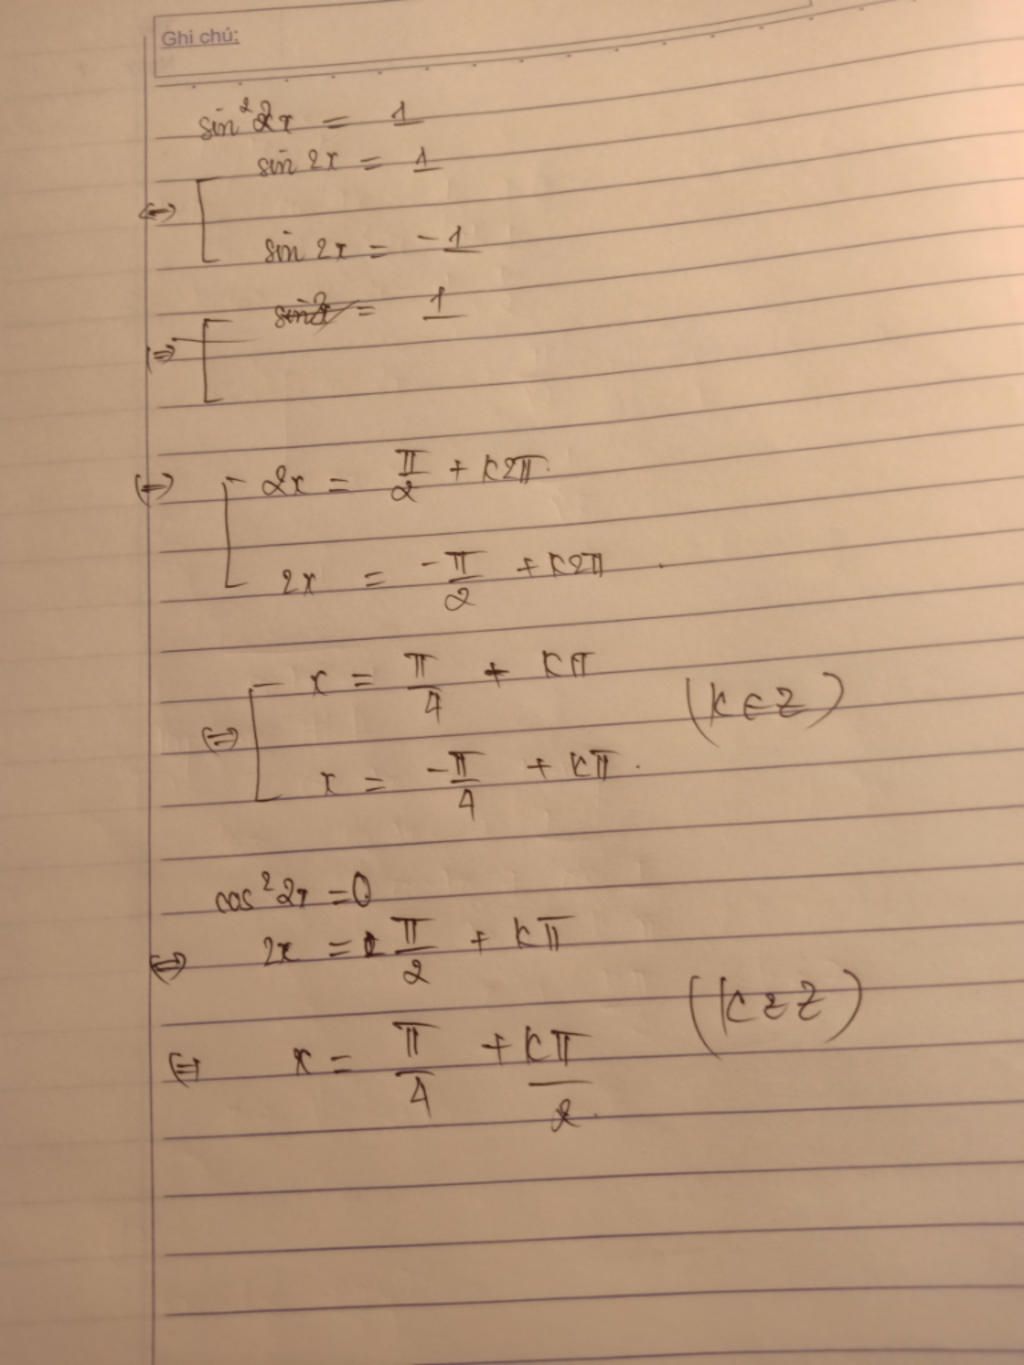 Ghi chú:
sin² 2x = 1
sin 2x = 1
⇔
sin 2x = -1
= 1
⇔
⇔ 2x = π/2 + k2π
2x = -π/2 + k2π
x = π/4 + kπ
⇔ (k ∈ Z)
x = -π/4 + kπ
cos² 2x = 0
⇔ 2x = π/2 + kπ
(k ∈ Z)
⇔ x = π/4 + kπ/2